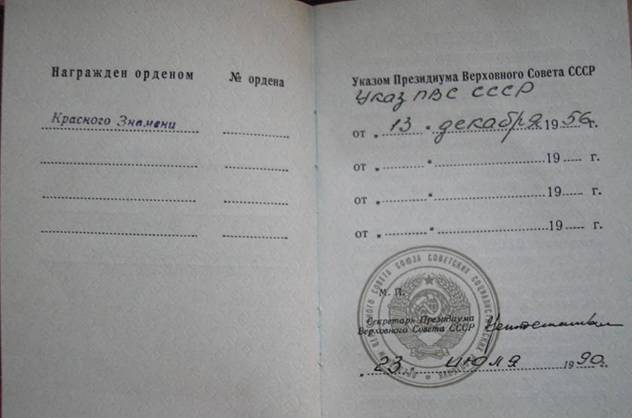 Награжден орденом № ордена
Красного Знамени
Указом Президиума Верховного Совета СССР
Указ ПВС СССР
от „ 13 " декабря 1956 г.
от „ " 19 г.
от „ " 19 г.
от „ " 19 г.
М. П.
Секретарь Президиума
Верховного Совета СССР
„ 23 июля 1990 г.